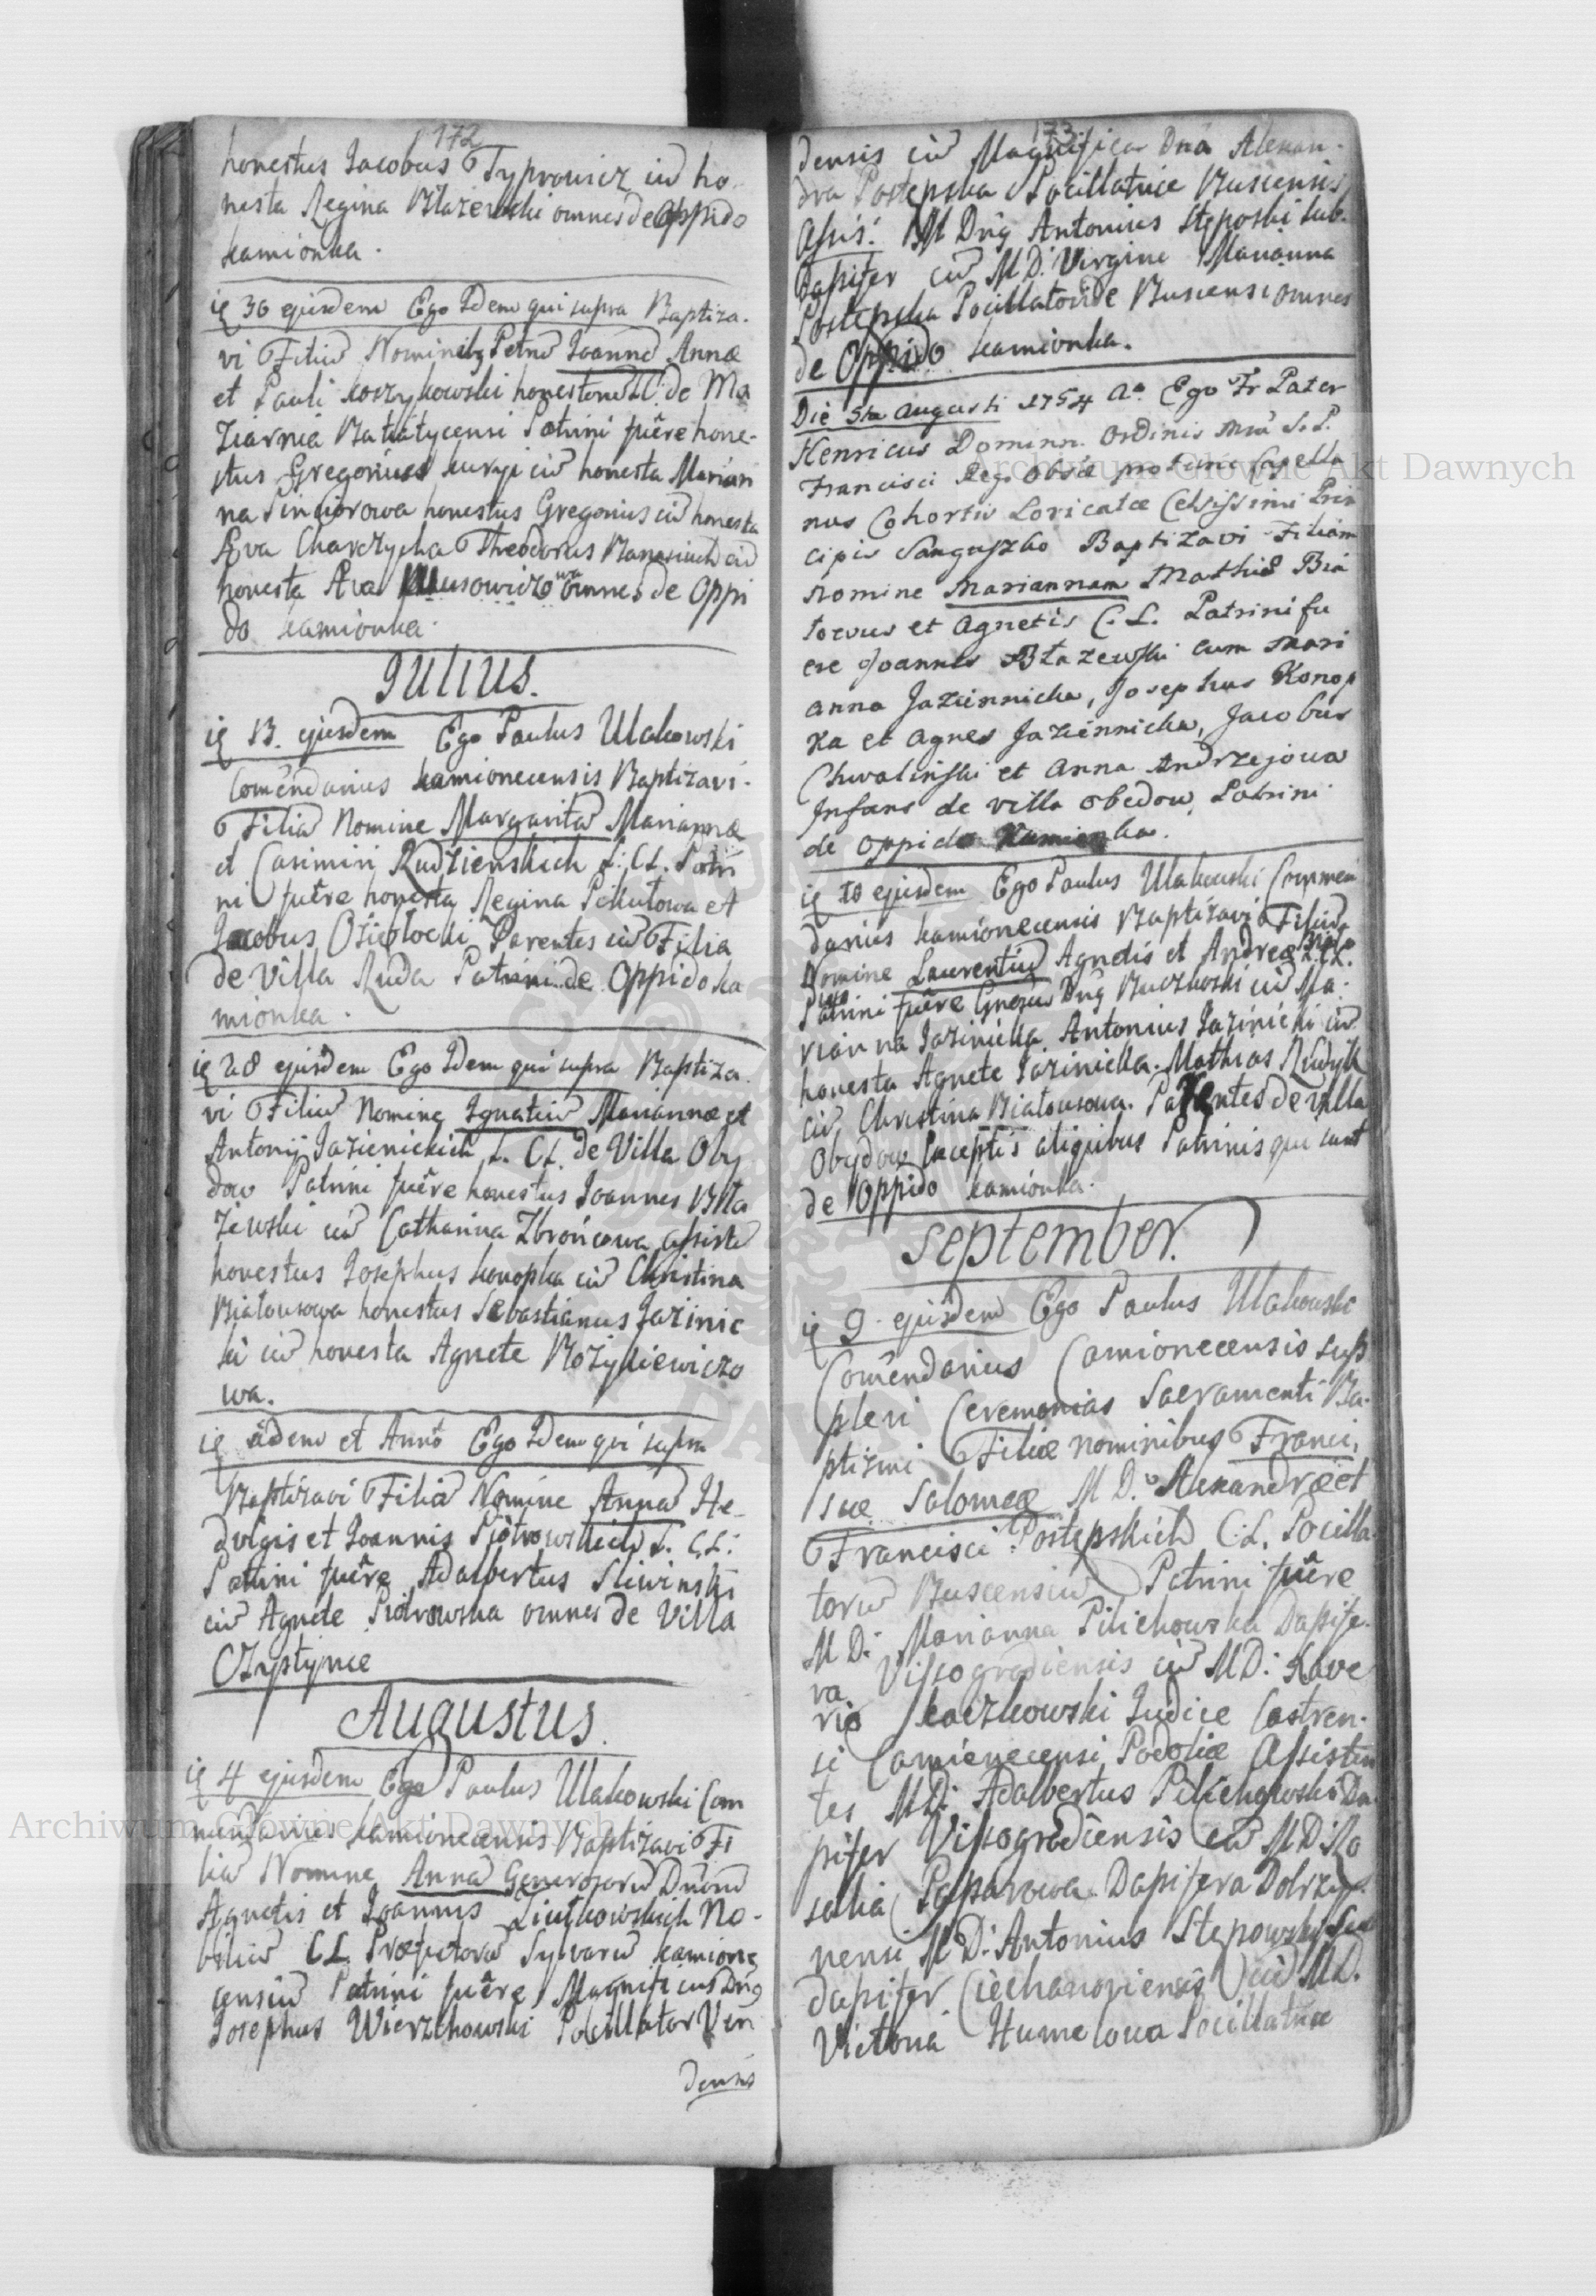 172
honestus Jacobus Typrowicz cũ ho-
nesta Regina Błażewski omnes de Oppido
Kamionka.
ię 30 ejusdem Ego Idem qui supra Baptiza-
vi Filiũ Nominibg Petrũ Joannẽ Annæ
et Pauli Koszykowski honestorũ LC: de Ma
ziarnia Batiatycensi Patrini fuêre hone-
stus Gregorius Kuryj cũ honesta Marian
na honestus Gregorius cũ honesta
Eva Charczycha Theodorus Banasiuch cũ
honesta omnes de Oppi
do Kamionka.
Julius.
ię 13. ejusdem Ego Paulus Ulakowski
Comẽndarius Kamionecensis Baptizavi.
Filiã Nomine Margaritã Mariannæ
et Casimiri Rudzienskich L: CL. Patri
ni fuêre honesta Regina Pikutowa et
Jacobus Osiełocki Parentes cũ Filia
de Villa Ruda Patrini de Oppido Ka
mionka.
ię 28 ejusdem Ego Idem qui supra Baptiza.
vi Filiũ Nomine Ignatiũ Mariannæ et
Antonij Jazienickich L. CL. de Villa Oby
dow Patrini fuêre honestus Joannes Bła
żewski cũ Catharina Zbrońcowa assistẽ
honestus Josephus Konopka cũ Christina
Białousowa honestus Sebastianus Jazinic
ki cũ honesta Agnete Bożykiewiczo
wa.
ię âdem et Annô Ego Idem qui supra
Baptizavi Filiã Nomine Annã He-
dvigis et Joannis Piotrowskich L. C.L:
Patrini fuêre Adalbertus Sliwinski
cũ Agnete Piotrowska omnes de Villa
Czystynie
Augustus.
ię 4 ejusdem Ego Paulus Ulakowski Com
mendarius Kamionecensis Baptizavi Fi
liã Nomine Annã Generosorũ Dñorũ
Agnetis et Joannis Liutkowskich No-
biliũ CL. Præfectorũ Sylvarũ Kamione
censiũ Patrini fuêre Magnificus Dñg
Josephus Wierzchowski Pocillator Ven
densis
173
densis cũ Magnifica Dña Alexan-
dra Postepska Pocillatrice Buscensi
Assis: M Dñg Antonius Steposki Sub-
dapifer cũ M D. Virgine Marianna
Postepska Pocillatoride Buscensi omnes
de Oppido Kamionka.
Die 5ta Augusti 1754 Aº Ego Fr Pater
Henricus Dominn. Ordinis S. P.
Francisci Reg: Obsæ pro tunc Capella
nus Cohortis Loricatæ Celsissimi Prin
cipis Sanguszko Baptizavi Filiam
nomine Mariannam Mathiæ Bia
towus et Agnetis C. L. Patrini fu
ere Joannes Błazewski cum Mari
anna Jaziennicka, Josephus Konop
ka et Agnes Jaziennicka, Jacobus
Chwalinski et Anna Andrzejowa
Infans de villa Obedow, Patrini
de Oppido Kamionka.
ię 18 ejusdem Ego Paulus Ulakowski Commen
darius Kamionecensis Baptizavi Filiũ
Nomine Laurentiũ Agnetis et Andreæ L.CL.
Patrini fuêre Gnosus Dñg Buczkoski cũ Ma-
rianna Jazinicka. Antonius Jazinicki cũ
honesta Agnete Jazinicka. Mathias Rudyk
cũ Christina Białousowa. Parentes de villa
Obydow Exceptis aliquibus Patrinis qui sunt
de Oppido Kamionka.
September.
ię 9. ejusdem Ego Paulus Ulakowski
Comẽndarius Camionecensis sup
plevi Ceremonias Sacramenti Ba-
ptizmi Filiæ nominibus Franci,
scæ Salomeæ M D. Alexandræ et
Francisci Postepskich C.L. Pocilla
torũ Buscensiũ Patrini fuêre
M D: Marianna Pilichowska Dapife-
ra Vissogradiensis cũ M D: Xave
rio Kaczkowski Judice Castren-
si Camienecensi Podoliæ Assisten
tes M D: Adalbertus Pilichowski Da
pifer Vissogradiensis cũ M D: Ro
salia Paparowa Dapifera Dobrzy-
nensi M D: Antonius Stepowski Sub
dapifer Ciechanoviensis cũ M D.
Victoria Humelowa Pocillatrice
Archiwum Główne Akt Dawnych
Archiwum Główne Akt Dawnych